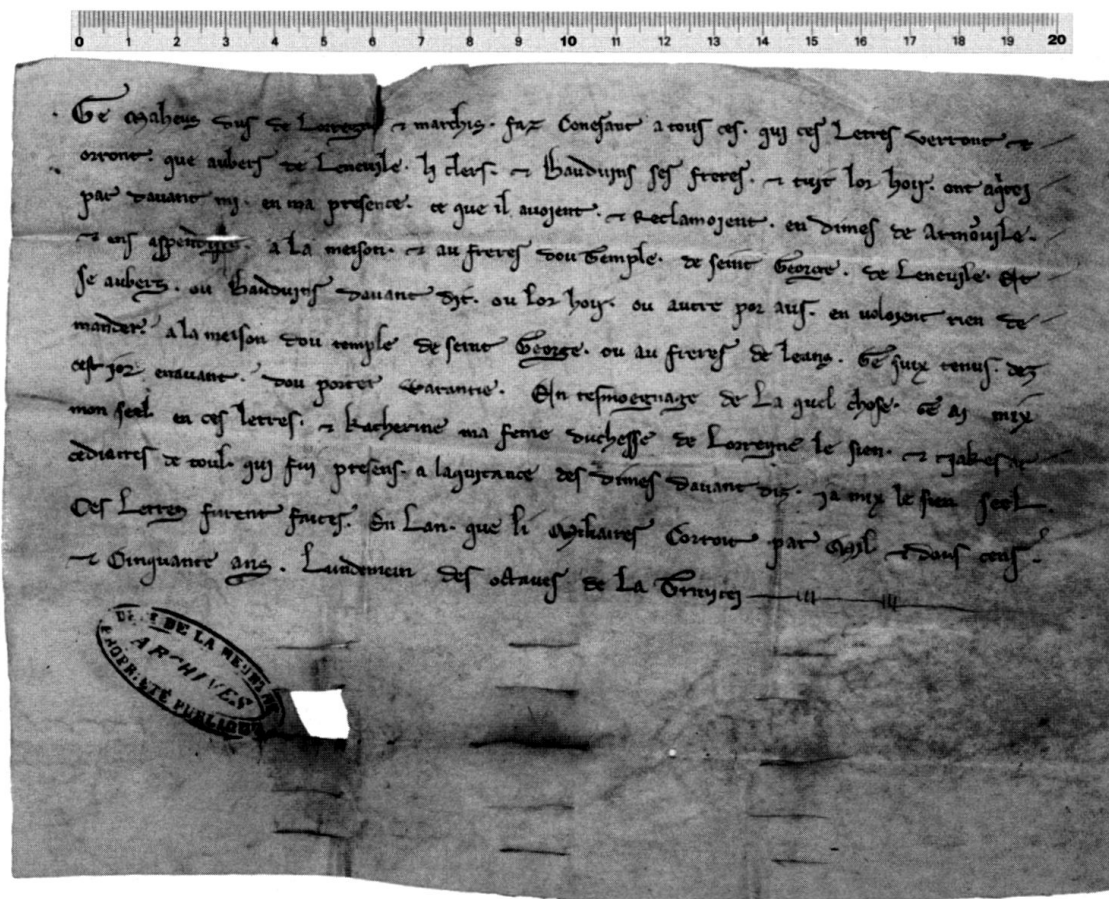 0 1 2 3 4 5 6 7 8 9 10 11 12 13 14 15 16 17 18 19 20
Ge Maheus dus de Lorregne ⁊ marchis. faz Conesant a tous ces. qui ces Letres verront ⁊
orront. que aubers de Leneuile. li clers. ⁊ Bauduins ses freres. ⁊ tuit lor hoir. ont aq̃tei
par dauant mi. en ma presence. ce que il auoient. ⁊ Reclamoient. en dimes de
⁊ ens a la meison. ⁊ au freres dou Temple. de seint George. de Leneuile. Et
se aubers. ou Bauduins dauant dit. ou lor hoir. ou autre por aus. en voloient rien de
mander. a la meison dou temple de seint George. ou au freres de leans. Ge suix tenus. dez
cest jor enauant. dou porter Warantie. En tesmoegnage de La quel chose. Ge ai mix
mon seel en ces letres. ⁊ Katherine ma feme duchesse de Lorregne le sien. ⁊ Jakes
cediacres de toul. qui fui presens. a laquitance des dimes dauant diz. i a mix le sien seel.
Ces Letres furent faites. En Lan. que li Miliaires Corroit par Mil ⁊ dous cens.
⁊ Cinquante ans. Lundemein des octaues de La Trinitei
DE LA MEURTHE
ARCHIVES
PROPRIÉTÉ PUBLIQUE